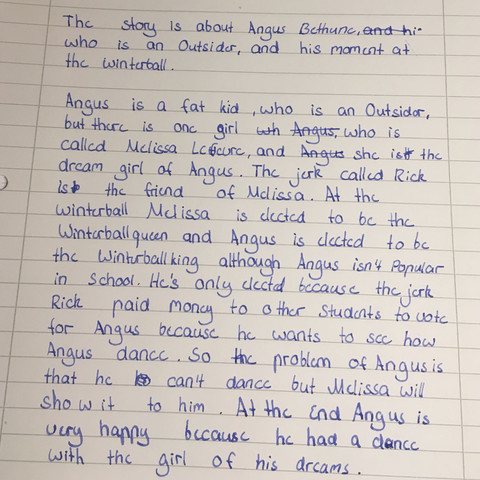 The story is about Angus Bethune, and hi
who is an Outsider, and his moment at
the winterball.
Angus is a fat kid, who is an Outsider,
but there is one girl wh Angus, who is
called Melissa Lefeure, and Angus she is the
dream girl of Angus. The jerk called Rick
is the friend of Melissa. At the
Winterball Melissa is elected to be the
Winterballqueen and Angus is elected to be
the Winterballking although Angus isn't Popular
in School. He's only elected because the jerk
Rick paid money to other students to vote
for Angus because he wants to see how
Angus dance. So the problem of Angus is
that he can't dance but Melissa will
show it to him. At the End Angus is
very happy because he had a dance
with the girl of his dreams.